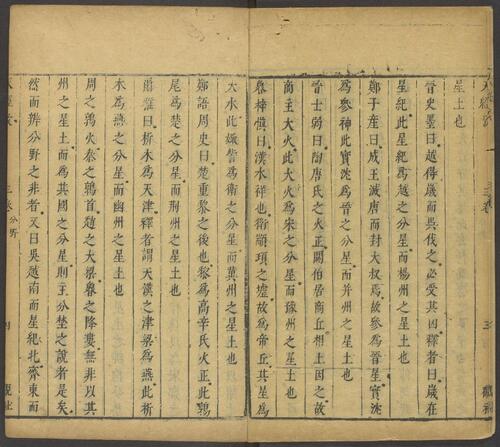 星土也
晉史墨曰越得歲而吳伐之必受其凶釋者曰歲在
星紀此星紀為越之分星而楊州之星土也
鄭子產曰成王滅唐而封大叔焉故參為晉星實沈
為參神此實沈為晉之分星而并州之星土也
晉士弱曰陶唐氏之火正閼伯居商丘相土因之故
商主大火此大火為宋之分星而豫州之星土也
魯梓慎曰漢水祥也衛顓頊之墟故為帝丘其星為
大水此娵訾為衛之分星而冀州之星土也
鄭語周史曰楚重黎之後也黎為高辛氏火正此鶉
尾為楚之分星而荊州之星土也
爾雅曰析木為天津釋者謂天漢之津梁為燕此析
木為燕之分星而幽州之星土也
周之鶉火秦之鶉首趙之大梁魯之降婁無非以其
州之星土而為其國之分星則主分埜之說者是矣
然而辨分野之非者又曰吳越南而星紀北齊東而
三卷
分野